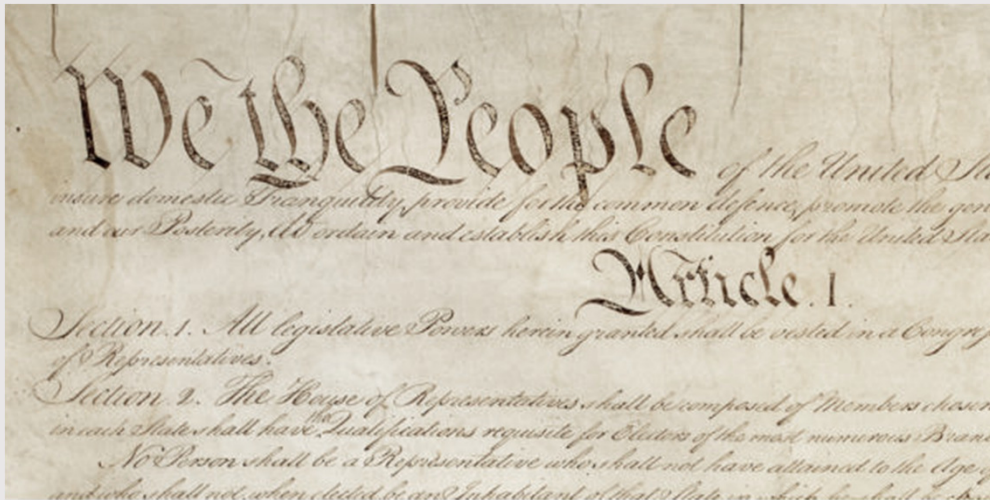 We the People of the United Sta
insure domestic Tranquility, provide for the common defence, promote the gen
and our Posterity, do ordain and establish this Constitution for the United Sta
Article. I.
Section. 1. All legislative Powers herein granted shall be vested in a Congre
of Representatives.
Section. 2. The House of Representatives shall be composed of Members chosen
in each State shall have the Qualifications requisite for Electors of the most numerous Bran
No Person shall be a Representative who shall not have attained to the Age o
and who shall not, when elected, be an Inhabitant of that State in which he shall be